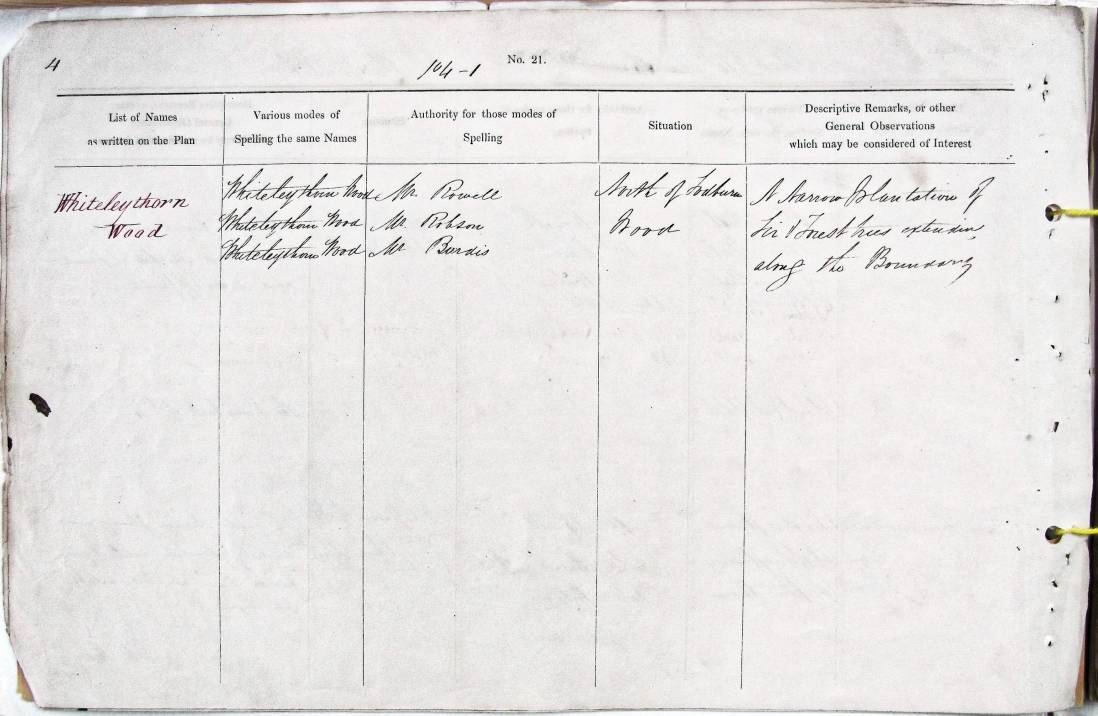 4
104-1
No. 21.
List of Names
as written on the Plan
Various modes of
Spelling the same Names
Authority for those modes of
Spelling
Situation
Descriptive Remarks, or other
General Observations
which may be considered of Interest
Whiteleythorn
Wood
Whiteleythorn Wood
Whiteleythorn Wood
Whiteleythorn Wood
Mr. Rowell
Mr. Robson
Mr Burdis
North of Todburn
Wood
A Narrow Plantation of
Fir & Forest trees extending
along the Boundary